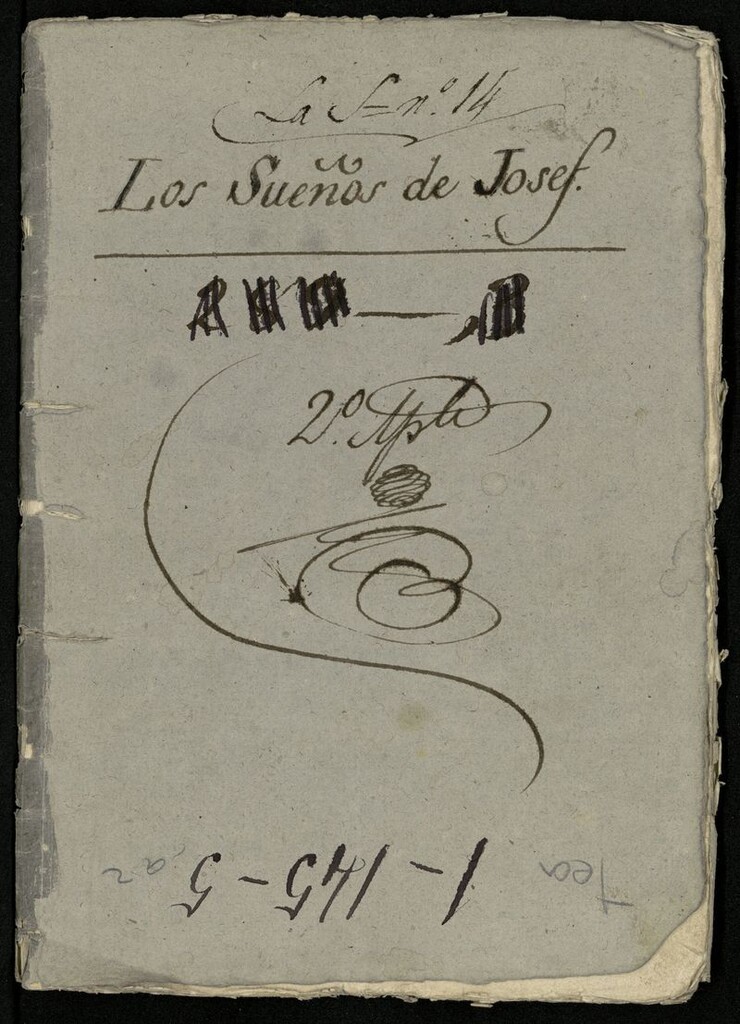 La S= nº. 14
Los Sueños de Josef.
2º. Apte
1-145-5, a2
Tea